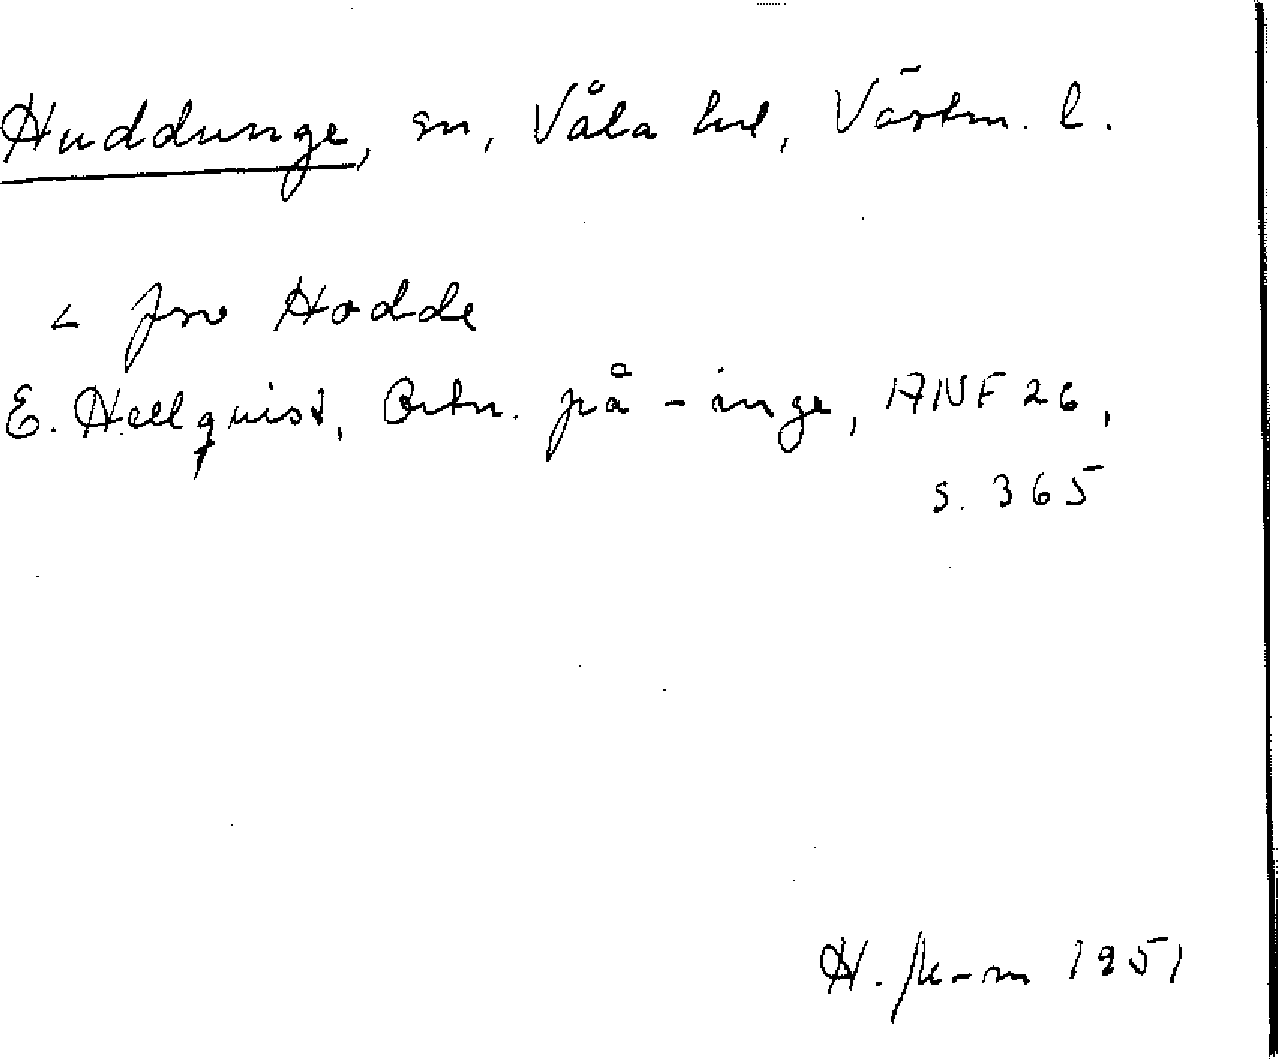 Huddunge, sn, Våla hd, Västm. l.
< fsv Hodde
E. Hellquist, Ortn. på -inge, ANF 26,
s. 365
H. 1951